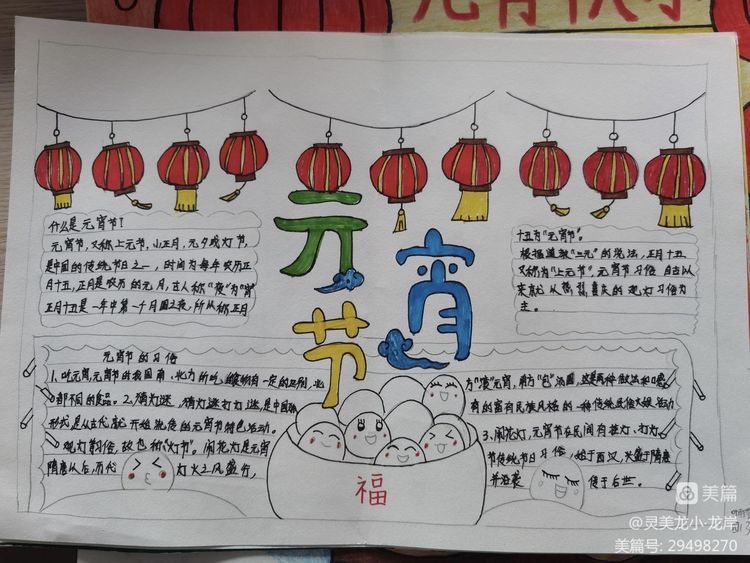 元宵节
什么是元宵节?
元宵节,又称上元节,小正月,元夕或灯节,
是中国的传统节日之一,时间为每年农历正
月十五,正月是农历的元月,古人称“夜”为“宵”
正月十五是一年中第一个月圆之夜,所以称正月
十五为“元宵节”。
根据道教“三元”的说法,正月十五
又称为“上元节”。元宵节习俗自古以
来就以热 喜庆的观灯习俗为
主。
元宵节的习俗
1、吃元宵,元宵节的我国南、北方所吃,
都不同的食品。2、猜灯谜,猜灯谜打灯谜,是中国
形式是从古代就开始流传的元宵节特色活动。
观灯习俗,故也称“灯节”。闹花灯是元宵
隋唐从后,历代 灯火之风盛行,
方“滚”元宵,南方“包”汤圆,这是两种做法和
有的富有民族风格的一种传统民俗文娱活动
3、闹花灯,元宵节在民间有挂灯、打灯、
节传统节日习俗,始于西汉,兴盛于隋唐
并沿袭 传于后世。
福
美篇
@灵美龙小·龙岸
美篇号: 29498270